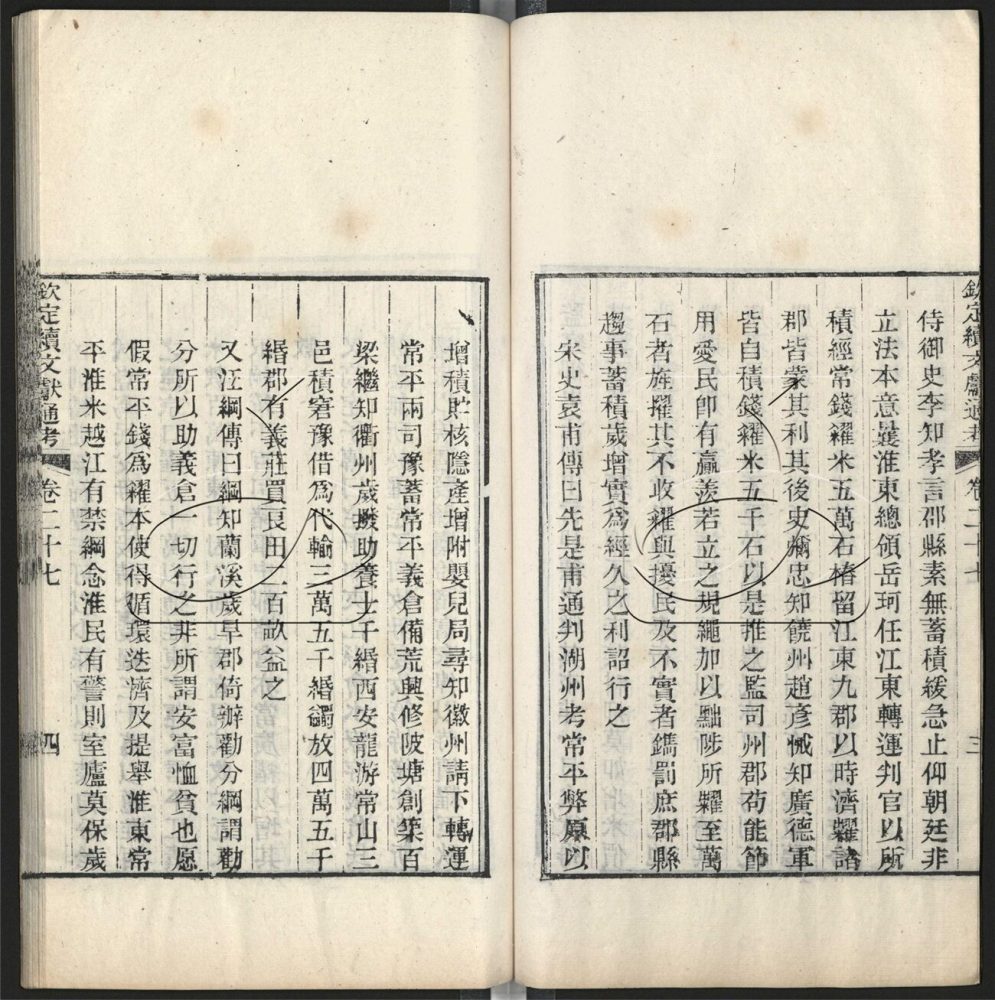 欽定續文獻通考
卷二十七
三
侍御史李知孝言郡縣素無蓄積緩急止仰朝廷非
立法本意曩淮東總領岳珂任江東轉運判官以所
積經常錢糴米五萬石樁留江東九郡以時濟糶諸
郡皆蒙其利其後史彌忠知饒州趙彥悈知廣德軍
皆自積錢糴米五千石以是推之監司州郡苟能節
用愛民卽有贏羨若立之規繩加以黜陟所糶至萬
石者旌擢其不收糴與擾民及不實者鐫罰庶郡縣
趨事蓄積歲增實爲經久之利詔行之
宋史袁甫傳曰先是甫通判湖州考常平弊原以
增積貯核隱產增附嬰兒局尋知徽州請下轉運
常平兩司豫蓄常平義倉備荒興修陂塘創築百
梁繼知衢州歲撥助養士千緡西安龍游常山三
邑積窘豫借爲代輸三萬五千緡蠲放四萬五千
緡郡有義莊買良田二百畝益之
又汪綱傳曰綱知蘭溪歲旱郡倚辦勸分綱謂勸
分所以助義倉一切行之非所謂安富恤貧也愿
假常平錢爲糴本使得循環迭濟及提舉淮東常
平淮米越江有禁綱念淮民有警則室廬莫保歲
欽定續文獻通考
卷二十七
四